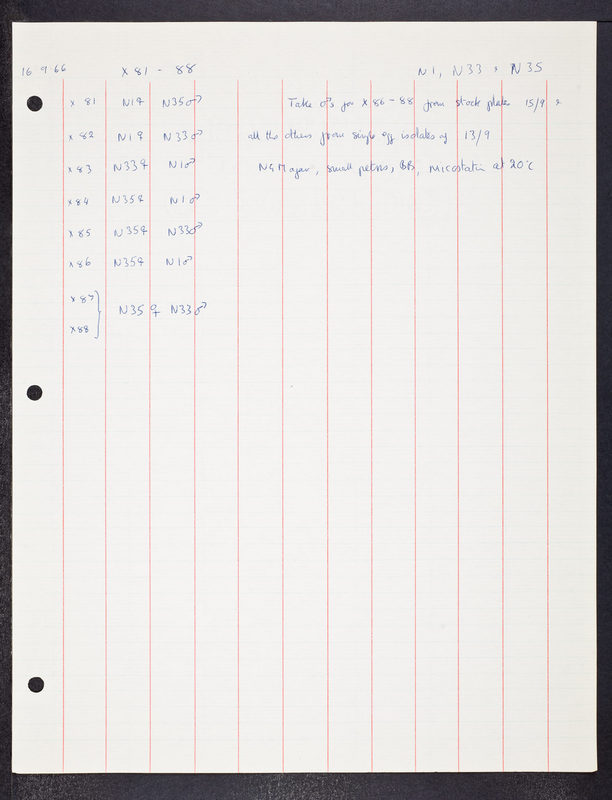 16 9.66 X 81 - 88 N1, N33 & N35
X 81 N1♀ N35♂ Take ♂s for X 86-88 from stock plates 15/9 &
X 82 N1♀ N33♂ all the others from single egg isolates of 13/9
X 83 N33♀ N1♂ NGM agar, small petris, BB, micostatin at 20°C
X 84 N35♀ N1♂
X 85 N35♀ N33♂
X 86 N35♀ N1♂
X 87
N35 ♀ N33♂
X 88